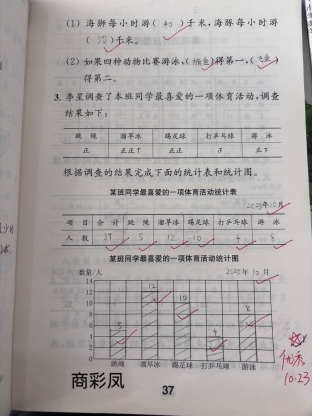 (1) 海狮每小时游( 40 )千米,海豚每小时游
( 50 )千米。
(2) 如果四种动物比赛游泳,( )得第一,( )
得第二。
3. 李星调查了本班同学最喜爱的一项体育活动,调查
结果如下:
跳绳 溜旱冰 踢足球 打乒乓球 游泳
正 正正丅 正正 正 正下
根据调查的结果完成下面的统计表和统计图。
某班同学最喜爱的一项体育活动统计表
10月
项目 合计 跳绳 溜旱冰 踢足球 打乒乓球 游泳
人数 39 5 12 10 4 8
某班同学最喜爱的一项体育活动统计图
数量/人 10月
14
12 12
10 10
8 8
6 5
4 4
2
0
跳绳 溜旱冰 踢足球 打乒乓球 游泳
优秀
10.23
商彩凤
37